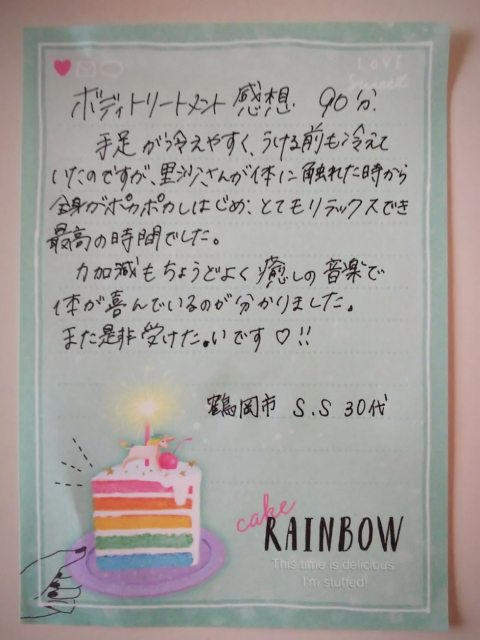 LOVE
Sweet
ボディトリートメント 感想 90分
手足が冷えやすく、うける前も冷えて
いたのですが、里沙さんが体に触れた時から
全身がポカポカしはじめ、とてもリラックスでき
最高の時間でした。
力加減もちょうどよく癒しの音楽で
体が喜んでいるのが分かりました。
また是非受けたいです♡!!
鶴岡市 S.S 30代
cake
RAINBOW
This time is delicious.
I'm stuffed!